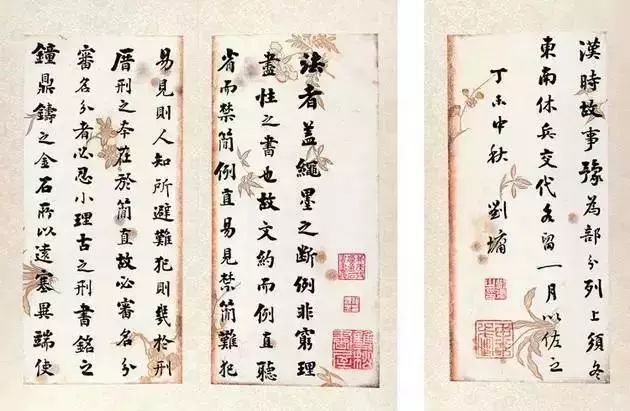 漢時故事豫為部分列上須冬
東南休兵交代各留一月以佐之
丁未中秋
劉墉
法者蓋繩墨之斷例非窮理
盡性之書也故文約而例直聽
省而禁簡例直易見禁簡難犯
易見則人知所避難犯則幾於刑
厝刑之本在於簡直故必審名分
審名分者必忍小理古之刑書銘之
鐘鼎鑄之金石所以遠塞異端使